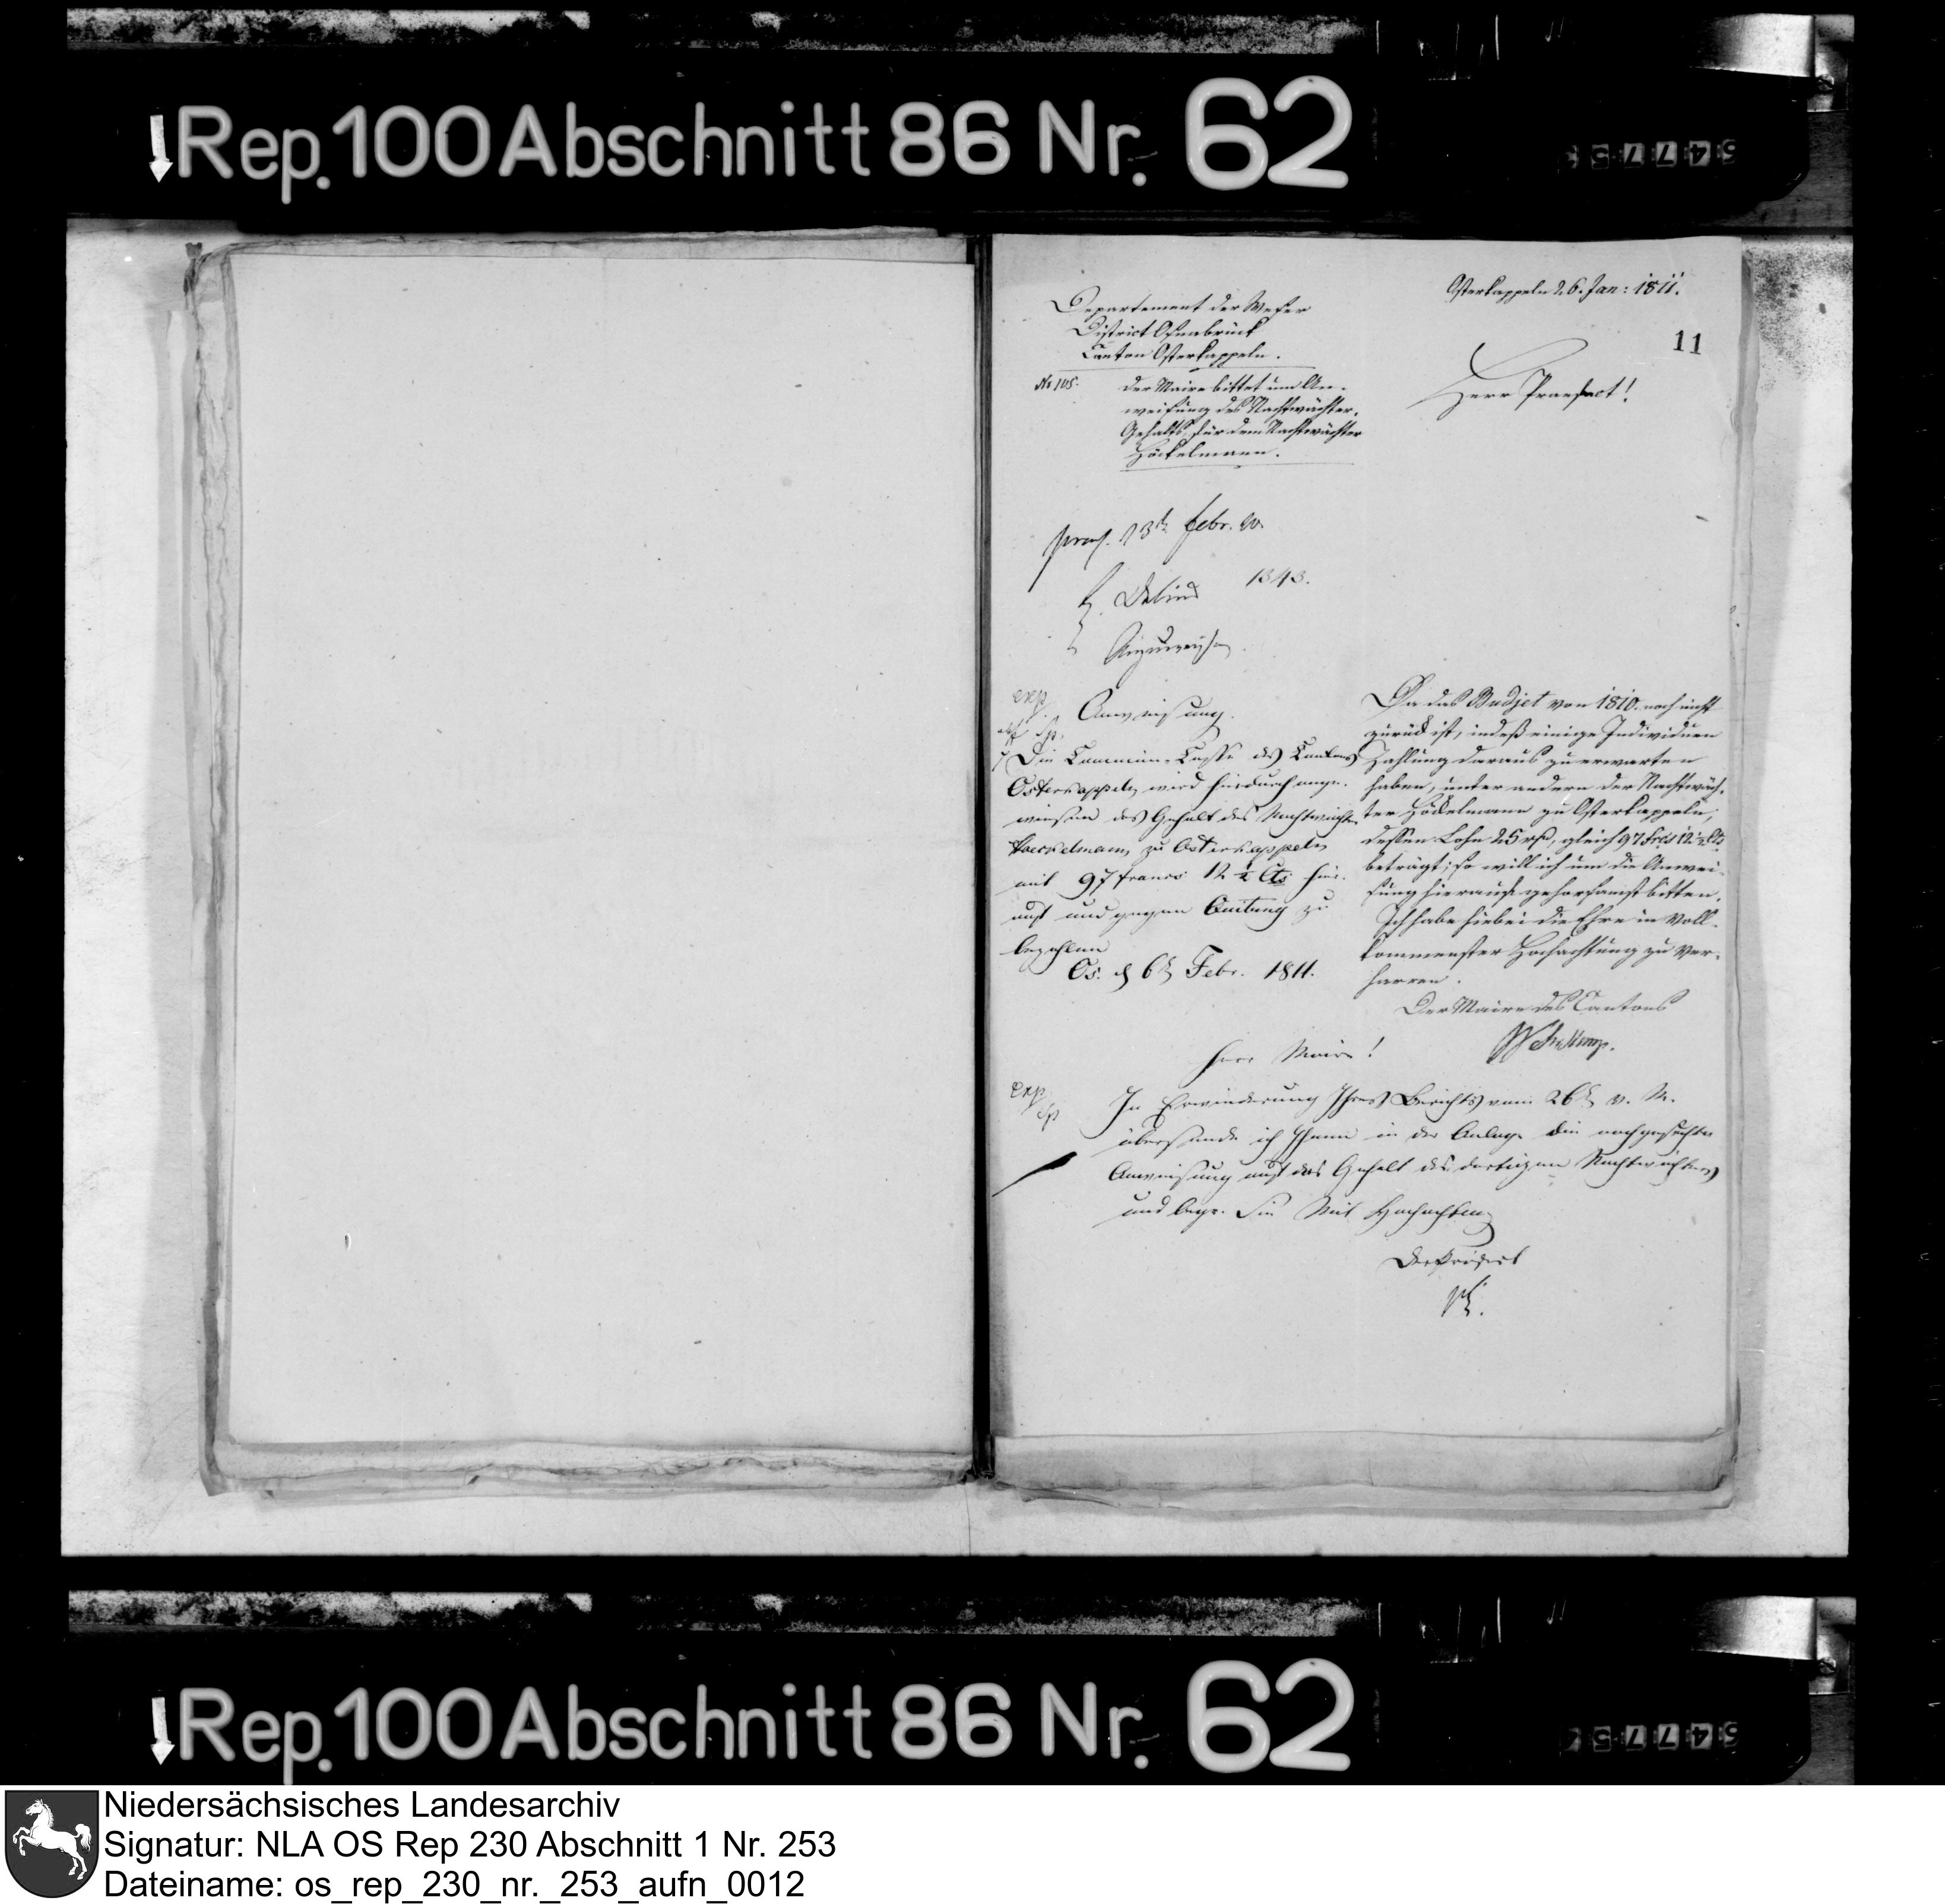 Rep. 100 Abschnitt 86 Nr. 62
Osterkappeln 26. Jan: 1811.
11
Departement der Weser
District Osnabrück
Canton Osterkappeln.
No 105.
der Maire bittet um An-
weisung des Nachtwächter-
Gehalts, für dem Nachtwächter
Höckelmann.
Herr Praefect!
praes. 13t Febr. 
1343.
Anzuweisen
Da das Budjet von 1810. noch nicht
zurück ist, indeß einige Individuen
Zahlung daraus zu erwarten
haben, unter andern der Nachtwäch-
ter Höckelmann zu Osterkappeln,
dessen Lohn 25 rth, gleich 97 frcs 12 ½ Cts
beträgt; so will ich um die Anwei-
sung hierauf gehorsamst bitten.
Ich habe hiebei die Ehre in voll-
kommenster Hochachtung zu ver-
harren.
Der Maire des Cantons
exp.
Anweisung.
Die Commun-Casse des Cantons
Osterkappeln wird hiedurch ange-
wiesen das Gehalt des Nachtwächters
Hoeckelmann zu Osterkappeln
mit 97 francs 12 ½ Cts hier-
auf und gegen Quitung zu
bezahlen
Os. d 6t Febr. 1811.
Herr Maire!
exp.
In Erwiederung Ihres Berichts vom 26t v. M.
übersende ich Ihnen in der Anlage die nachgesuchte
Anweisung auf das Gehalt des dortigen Nachtwächters
und begr. Sie Mit Hochachtung
Der Präfect
Rep. 100 Abschnitt 86 Nr. 62
Niedersächsisches Landesarchiv
Signatur: NLA OS Rep 230 Abschnitt 1 Nr. 253
Dateiname: os_rep_230_nr._253_aufn_0012